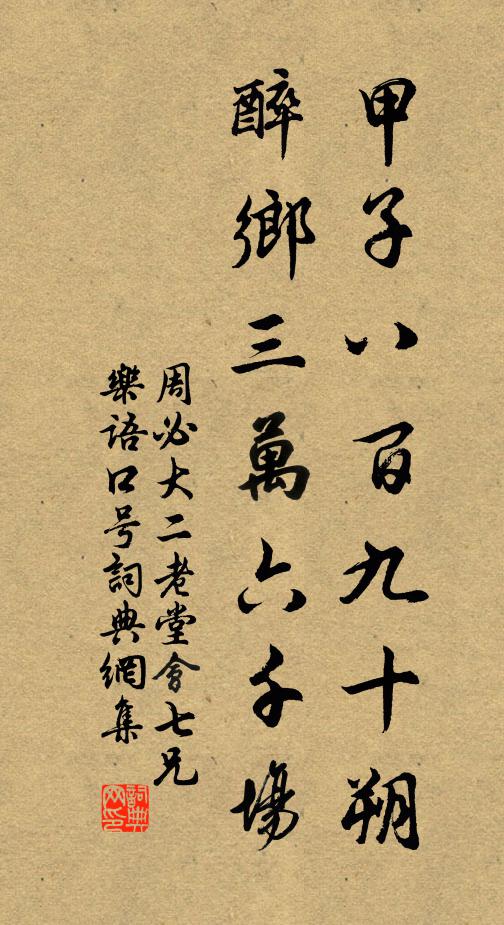 甲子八百九十朔
醉鄉三萬六千場
周必大二老堂會七兄
樂語口号詞典網集
詞典网印